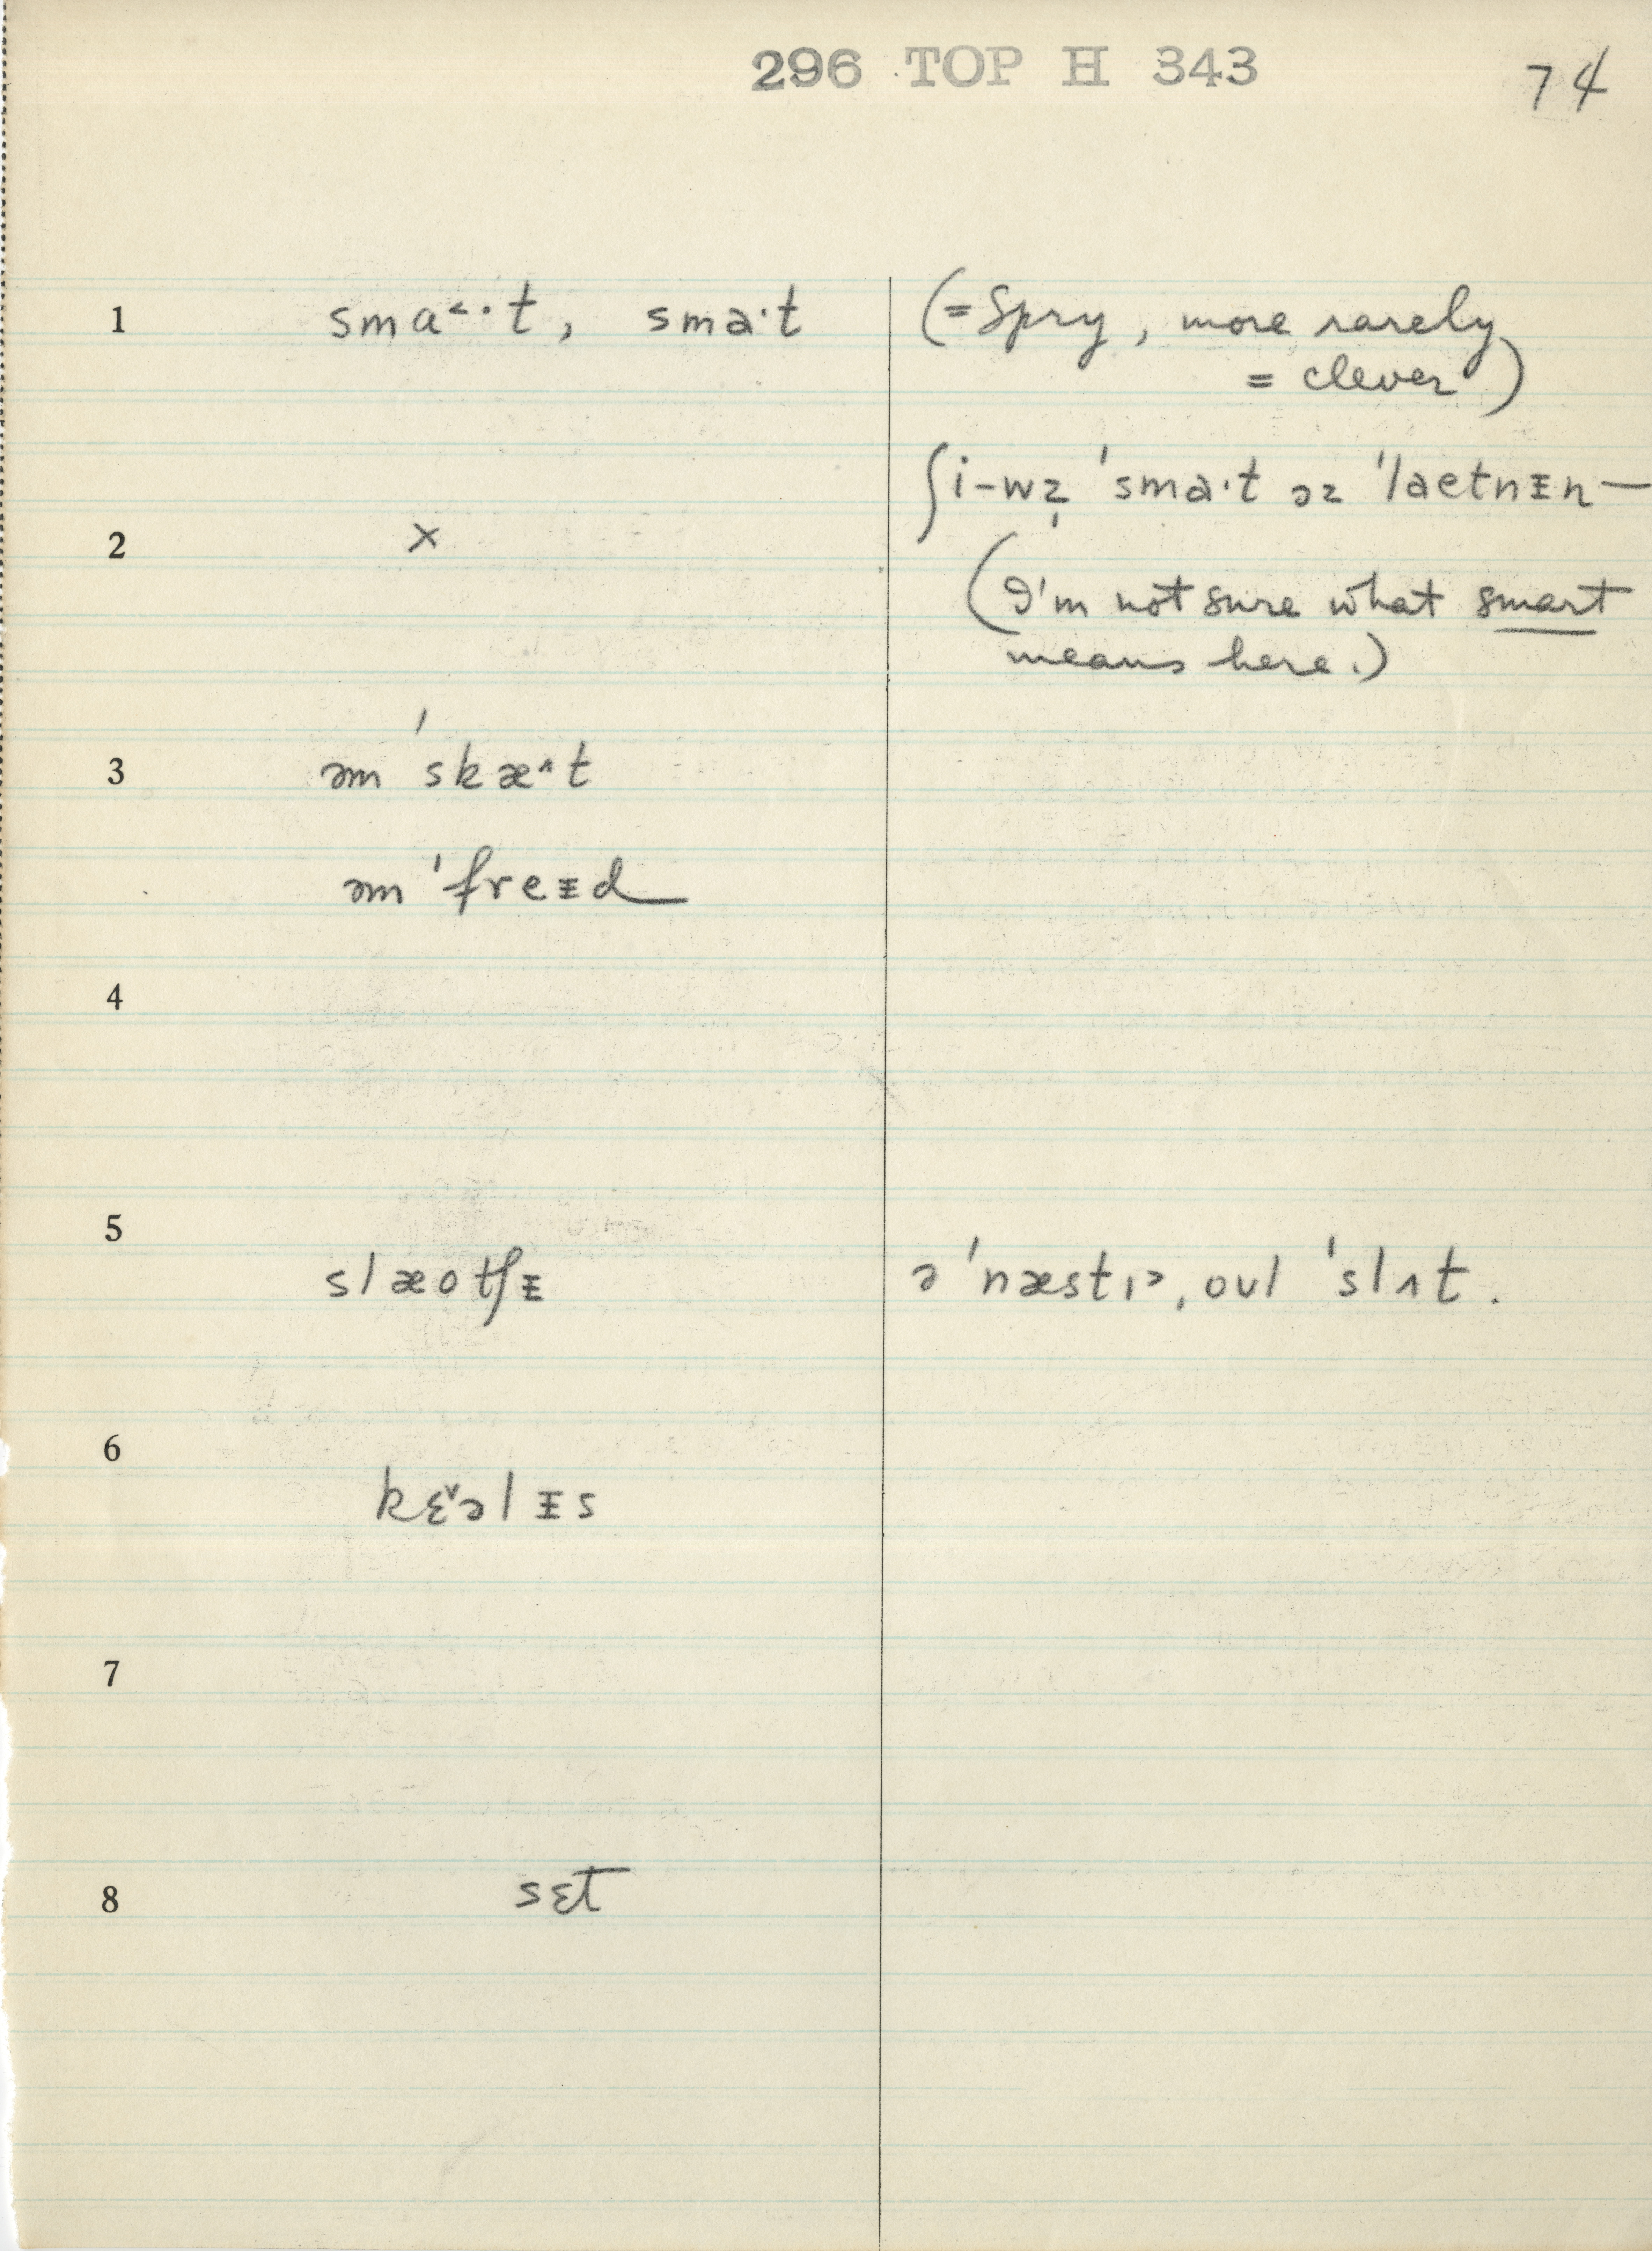 296 TOP H 343
74
1 smɑ˂·t, sma·t (=Spry, more rarely
= clever)
ʃi-wz̩ ˈsma·t əz ˈlaetnᵻn—
2 ×
(I'm not sure what smart
means here.)
3 əm ˈskæ^t
əm ˈfreᵻd
4
5
slæotʃᵻ ə ˈnæstɪ˃, oʊl ˈslʌt.
6
kɛ˅əlᵻs
7
8 sɛt